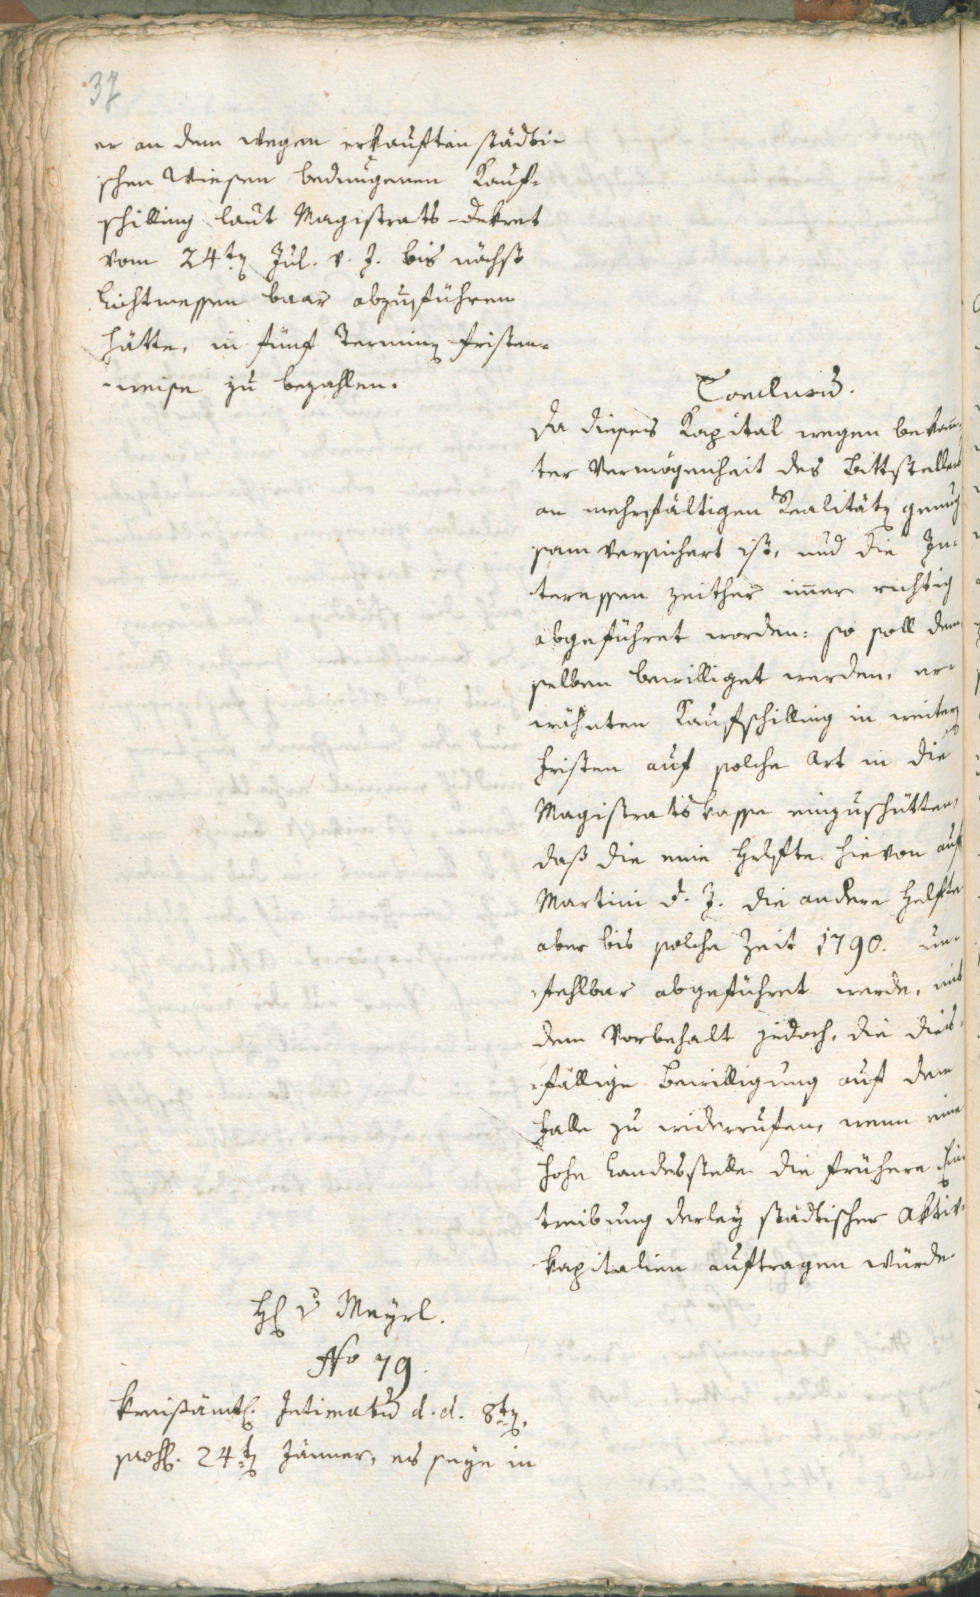 37
er an dem wegen erkauften städti-
schen Wiesen bedungenen Kauf-
schilling laut Magistrats-Dekret
vom 24ten Jul. v. J. bis nächst
Lichtmessen baar abzuführen
hätte, in fünf Terminen fristen-
weise zu bezahlen.
Conclusum.
Da dieses Kapital wegen bekann-
ter Vermögenheit des Bittstellers
an mehrfältigen Realitäten genug
sam versichert ist, und die In-
teressen zeither immer richtig
abgeführet worden: so soll dem
selben bewilliget werden, er-
wähnten Kaufschilling in weitern
Fristen auf solche Art in die
Magistratskasse einzuschütten,
daß die eine Helfte hievon auf
Martini d. J. die andere Helfte
aber bis solche Zeit 1790. un-
fehlbar abgeführet werde, mit
dem Vorbehalt jedoch, die dies-
fällige Bewilligung auf dem
Falle zu widerrufen, wenn eine
hohe Landesstelle die frühere Ein
treibung derley städtischer Aktiv-
kapitalien auftragen würde
H. v Mayrl.
No 79.
Kreisämtl. Intimatum d. d. 8ten,
praes. 24ten Jänner, es seye in